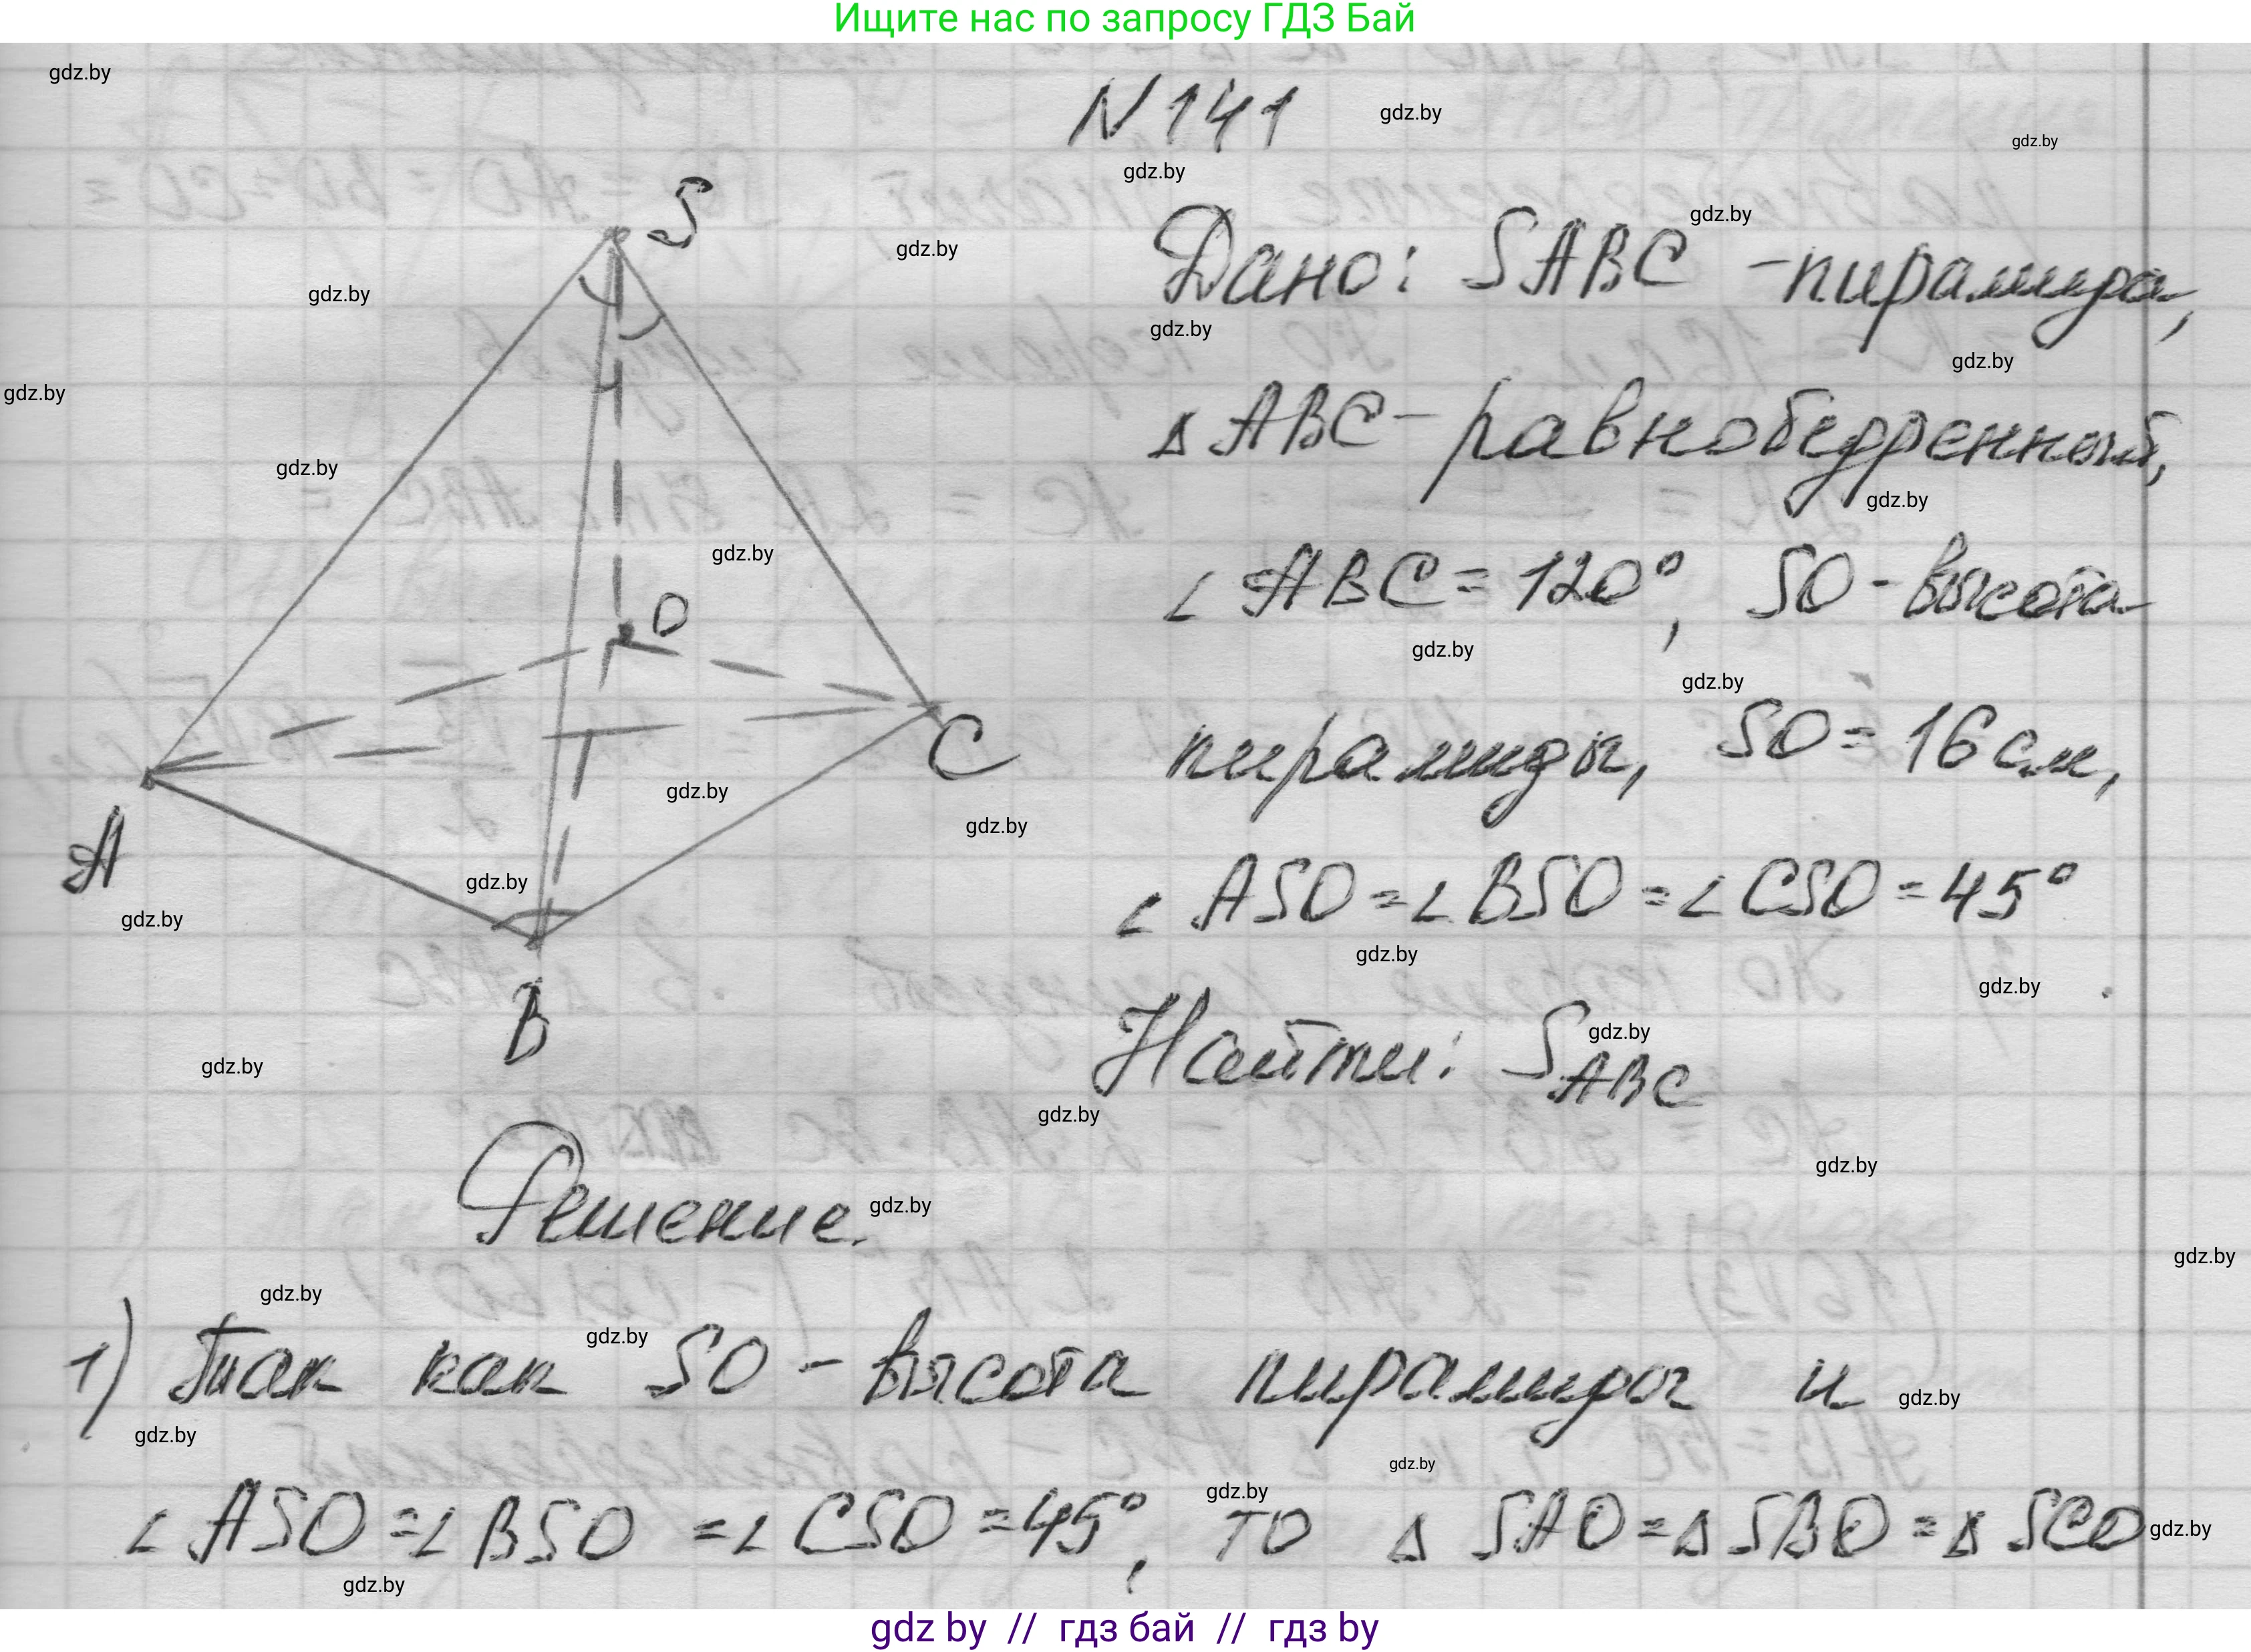 Ищите нас по запросу ГДЗ Бай
N 141
Дано: SABC - пирамида,
∆ ABC - равнобедренный,
∠ ABC = 120°, SO - высота
пирамиды, SO = 16 см,
∠ ASO = ∠ BSO = ∠ CSO = 45°
Найти: S ABC
S
O
C
A
B
Решение.
1) Так как SO - высота пирамиды и
∠ ASO = ∠ BSO = ∠ CSO = 45°, то ∆ SAO = ∆ SBO = ∆ SCO
gdz.by
gdz by // гдз бай // гдз by